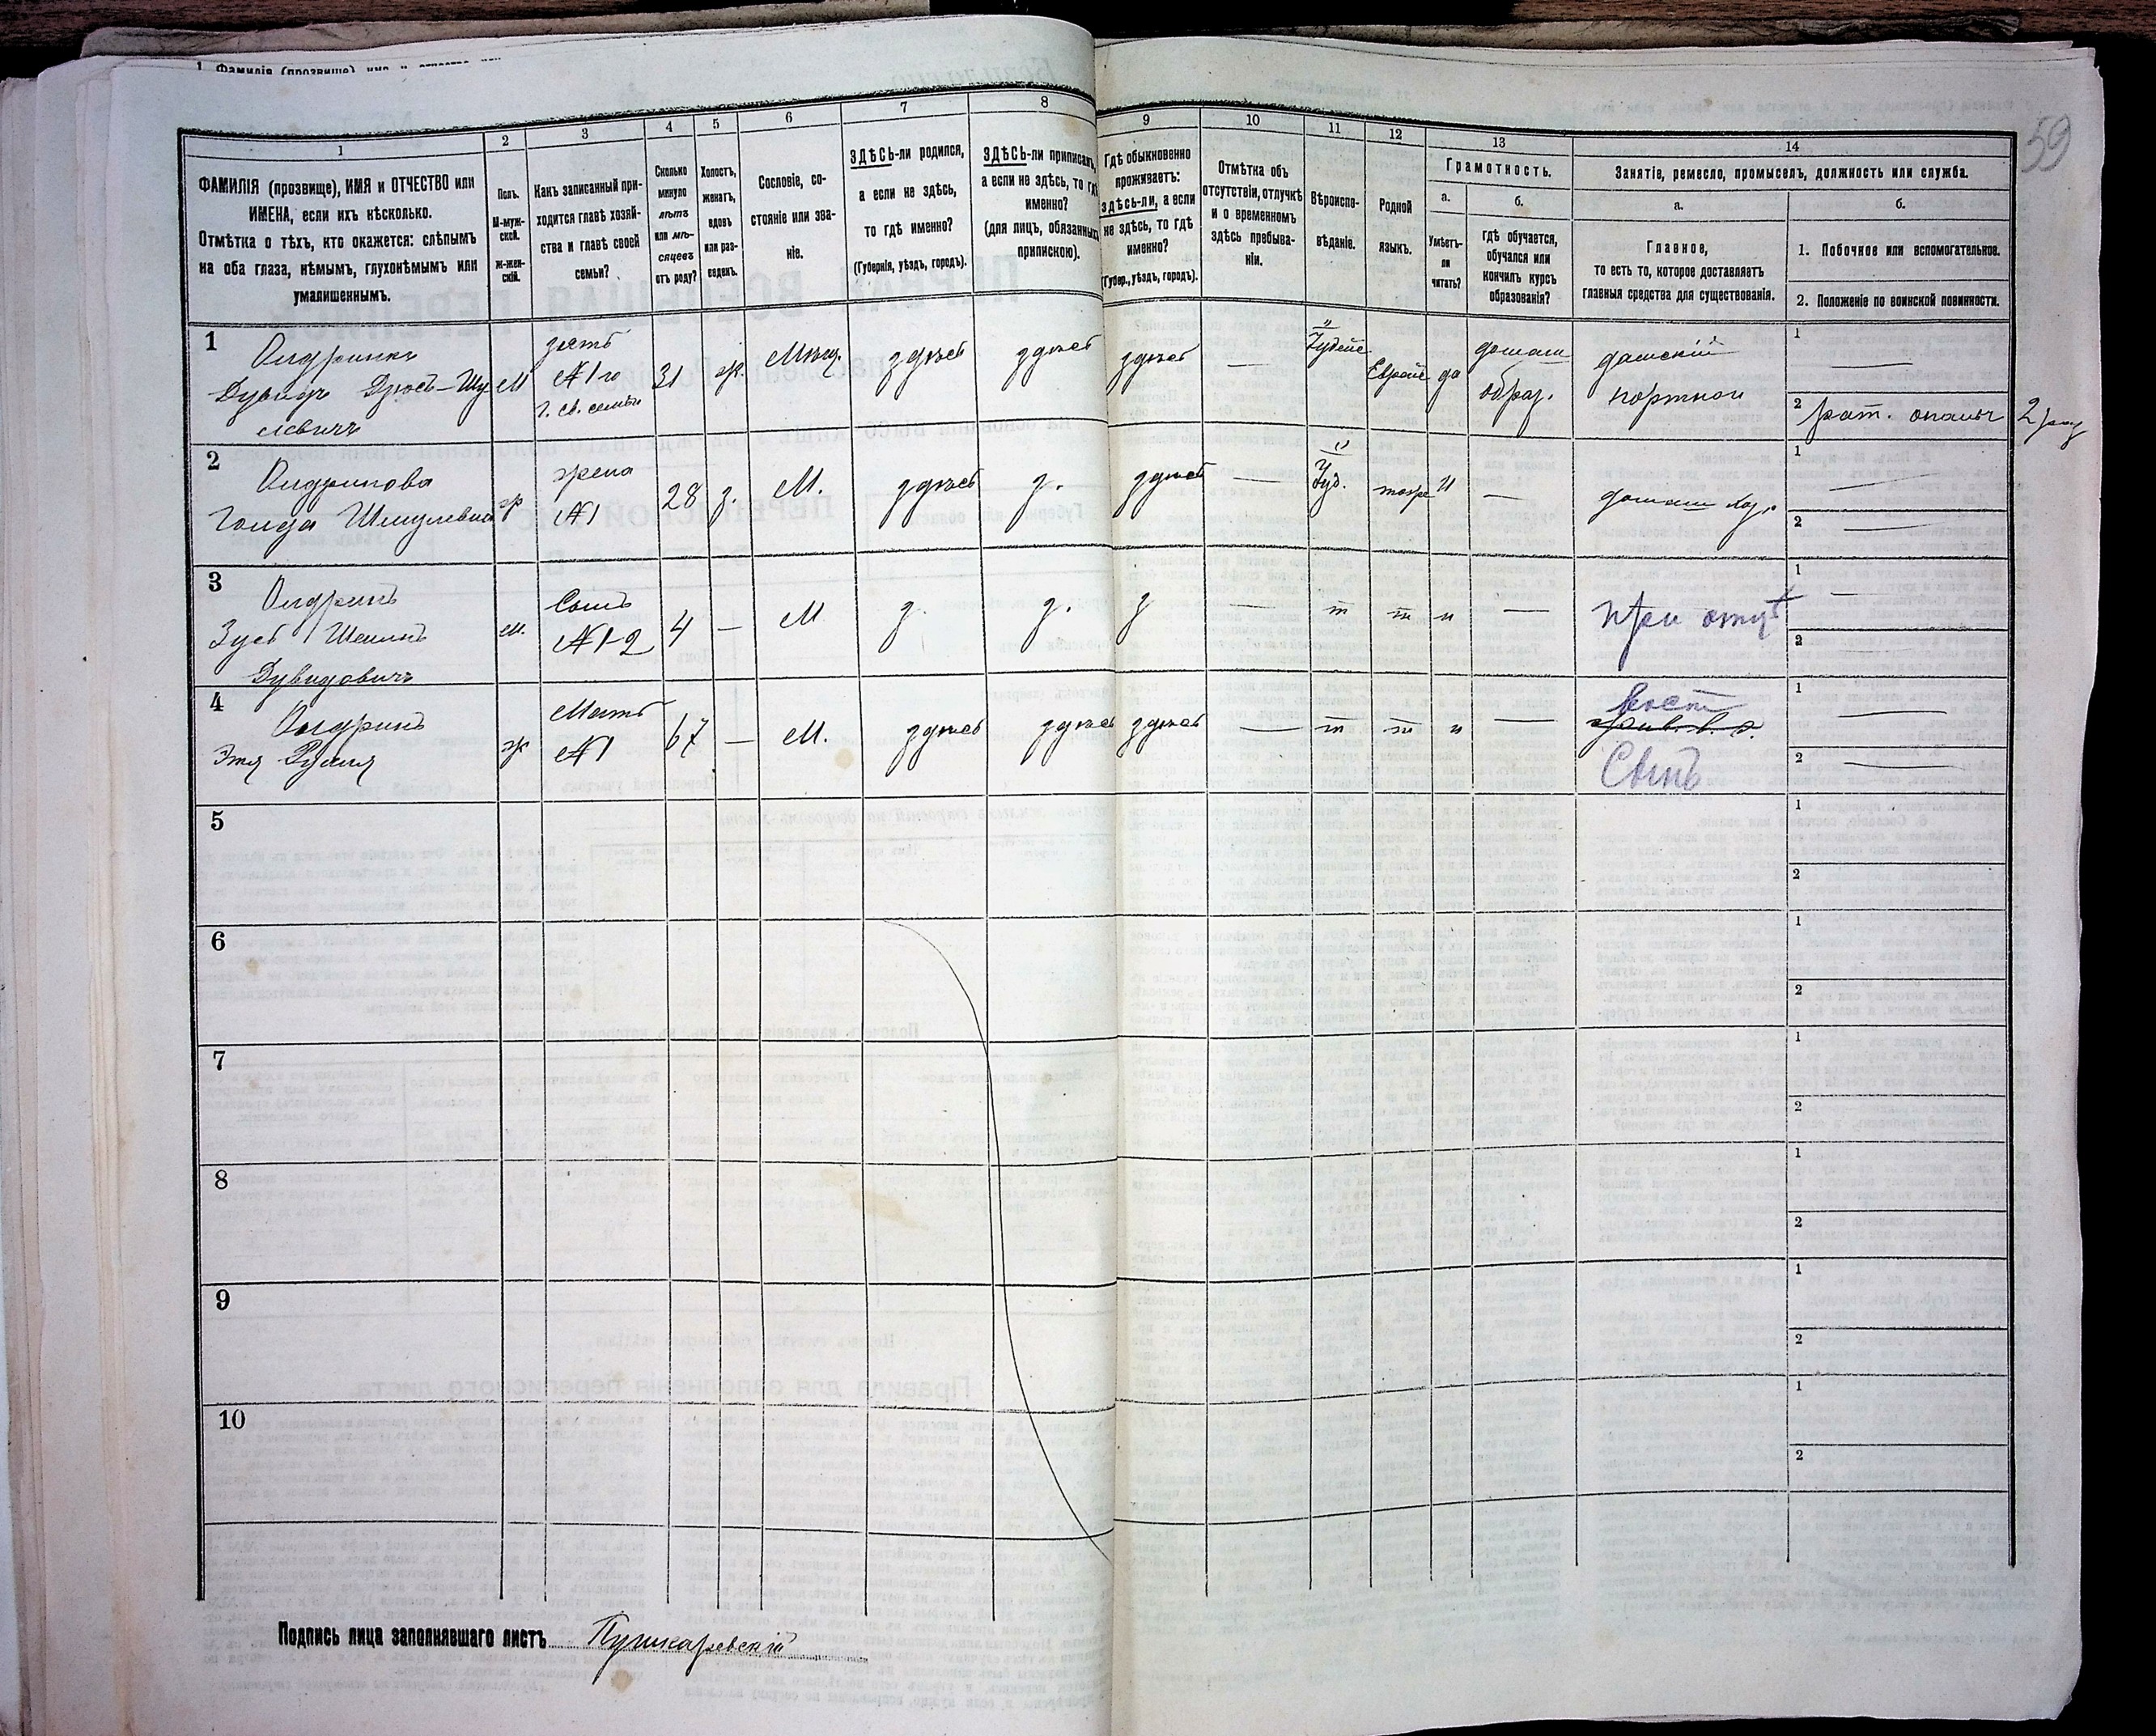 59
1
2
3
4
5
6
7
8
9
10
11
12
13
14
ФАМИЛІЯ (прозвище), ИМЯ и ОТЧЕСТВО или
ИМЕНА, если ихъ нѣсколько.
Отмѣтка о тѣхъ, кто окажется: слѣпымъ
на оба глаза, нѣмымъ, глухонѣмымъ или
умалишеннымъ.
Полъ.
М-муж-
ской.
Ж-жен-
скій.
Какъ записанный при-
ходится главѣ хозяй-
ства и главѣ своей
семьи?
Сколько
минуло
лѣтъ
или мѣ-
сяцевъ
отъ роду?
Холостъ,
женатъ,
вдовъ
или раз-
веденъ.
Сословіе, со-
стояніе или зва-
ніе.
ЗДѢСЬ-ли родился,
а если не здѣсь,
то гдѣ именно?
(Губернія, уѣздъ, городъ).
ЗДѢСЬ-ли приписанъ,
а если не здѣсь, то гдѣ
именно?
(для лицъ, обязанныхъ
припискою).
Гдѣ обыкновенно
проживаетъ:
здѣсь-ли, а если
не здѣсь, то гдѣ
именно?
(Губер., уѣздъ, городъ).
Отмѣтка объ
отсутствіи, отлучкѣ
и о временномъ
здѣсь пребыва-
ніи.
Вѣроиспо-
вѣданіе.
Родной
языкъ.
Грамотность.
а.
Умѣетъ-
ли
читать?
б.
Гдѣ обучается,
обучался или
кончилъ курсъ
образованія?
Занятіе, ремесло, промыселъ, должность или служба.
а.
Главное,
то есть то, которое доставляетъ
главныя средства для существованія.
б.
1. Побочное или вспомогательное.
2. Положеніе по воинской повинности.
1
М
зять
№ 1го
31
ж.
Мѣщ.
здѣсь
здѣсь
здѣсь
—
Іудейс
Еврейс
да
домаш
образ.
дамскій
портной
1 —
2 рат. ополч 2 раз
2
ж
жена
№1
28
з.
М.
здѣсь
з.
здѣсь
—
Іуд.
тоже
н
—
домаш хоз.
1 —
2 —
3
м.
Сынъ
№ 1-2
4
—
М
з.
з.
з
—
т
т
н
—
при отцѣ
1 —
2 —
4
Этя
ж
Мать
№1
67
—
М.
здѣсь
здѣсь
здѣсь
—
т
т
н
—
Сынъ
1 —
2 —
5
1
2
6
1
2
7
1
2
8
1
2
9
1
2
10
1
2
Подпись лица заполнявшаго листъ Пушкаревскій